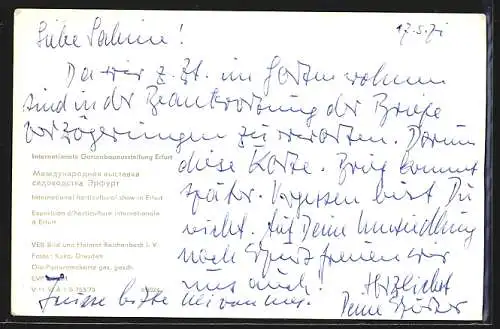 17.5.71
Liebe Sabine!
Da wir z. Zt. im Garten wohnen
sind in der Beantwortung der Briefe
Verzögerungen zu erwarten. Darum
diese Karte. Brief kommt
später. Vergessen bist Du
nicht. Auf Deine
noch freuen wir
uns auch! Herzlichst
Grüsse bitte Deine
Internationale Gartenbauausstellung Erfurt
Международная выставка
садоводства Эрфурт
International horticultural show in Erfurt
Exposition d'horticulture internationale
à Erfurt
VEB Bild und Heimat Reichenbach i. V.
Foto: Dresden